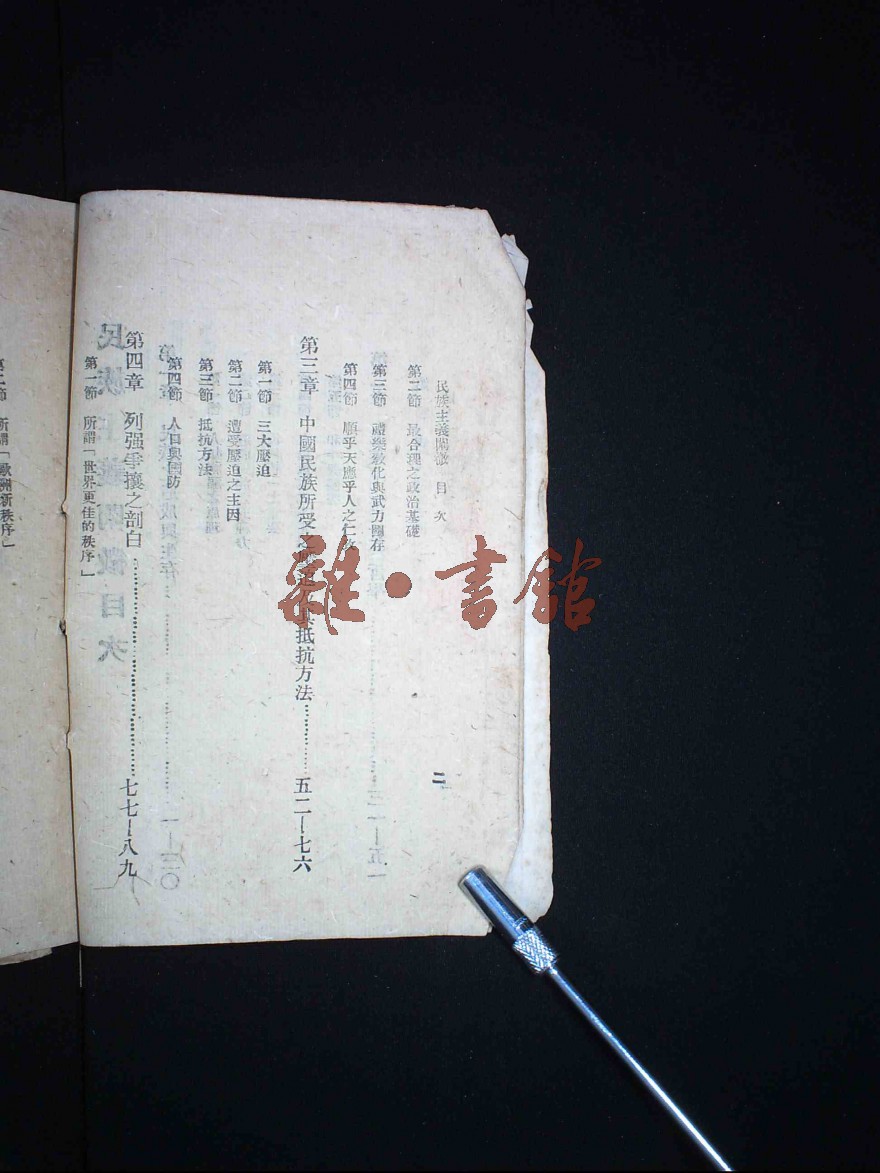 民族主義闡微 目次
二
第二節 最合理之政治基礎
第三節 禮樂敎化與武力並存
第四節 順乎天應乎人之仁政
第三章 中國民族所受之壓迫與其抵抗方法…………五二—七六
第一節 三大壓迫
第二節 遭受壓迫之主因
第三節 抵抗方法
第四節 人口與國防
第四章 列强爭攘之剖白…………七七—八九
第一節 所謂「世界更佳的秩序」
第二節 所謂「歐洲新秩序」
雜·書館